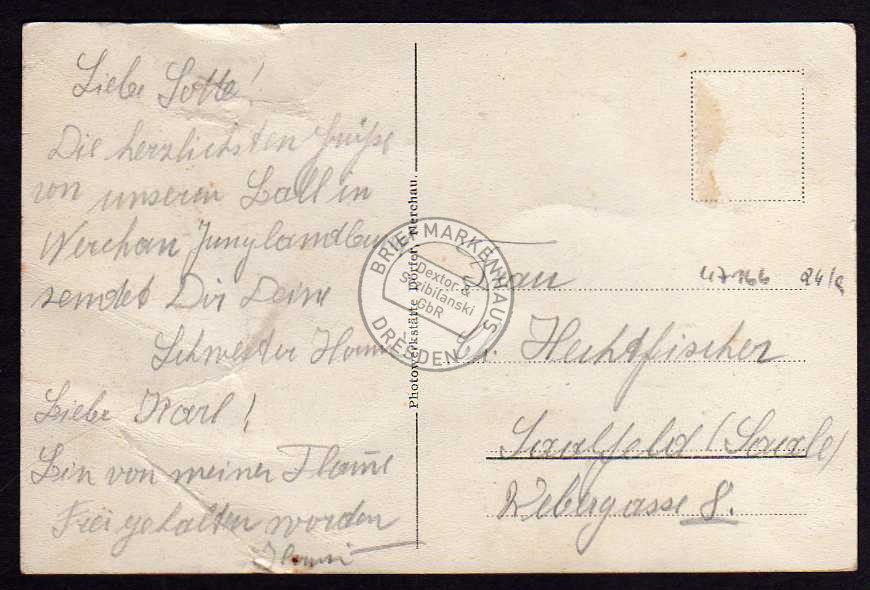 Liebe Lotte!
Die herzlichsten Grüße
von unserem Ball in
Nerchau Junglandbund
sendet Dir Deine
Schwester Hanni
Liebe Karl!
Bin von meiner Flamme
Frei gehalten worden
Hanni
Photowerkstätte Dörfer, Nerchau.
BRIEFMARKENHAUS
Dextor &
GbR
DRESDEN
Frau
47166 24/
Hechtfischer
Saalfeld (Saale)
Webergasse 8.